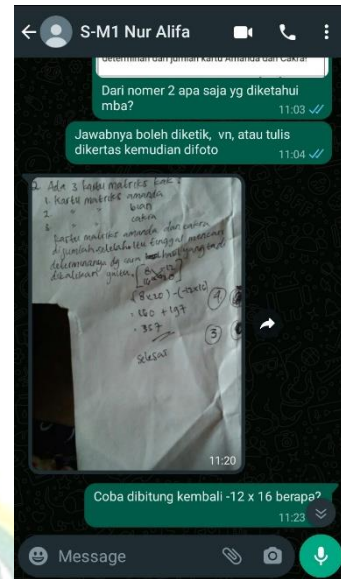 S-M1 Nur Alifa
determinan dari jumlah kartu Amanda dan Cakra!
Dari nomer 2 apa saja yg diketahui
mba?
11:03
Jawabnya boleh diketik, vn, atau tulis
dikertas kemudian difoto
11:04
2. Ada 3 kartu matriks kak
1. Kartu matriks amanda
2. " " bian
3. " " cakra
kartu matriks amanda dan cakra
di jumlah, setelah itu tinggal mencari
determinannya dg cara hasil yang tadi
dikalikan yaitu,
(8x20) - (-12x16)
= 160 + 197
= 357
4
3
selesai
11:20
Coba dibitung kembali -12 x 16 berapa?
11:23
Message